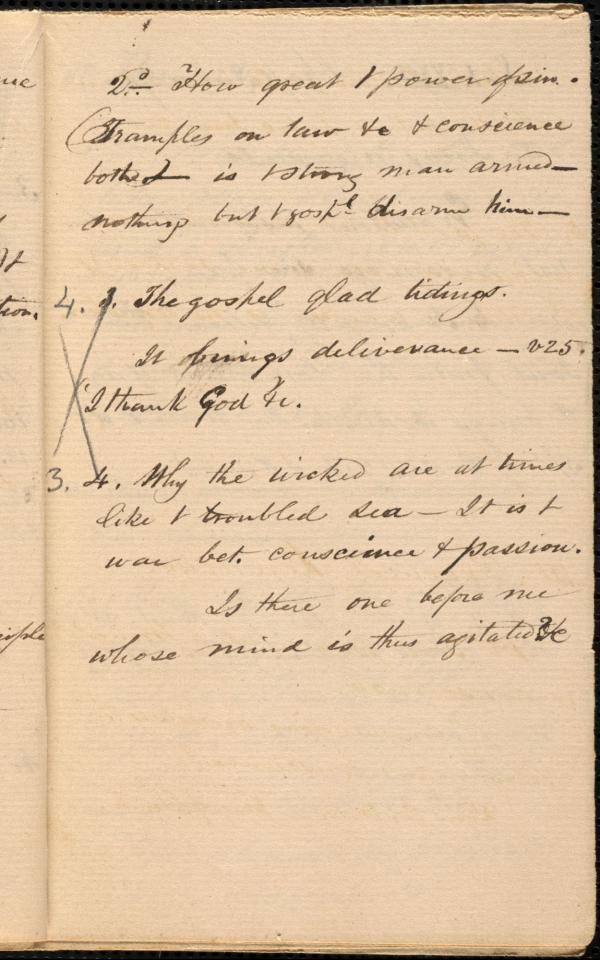 2.º How great t power of sin.
(Tramples on law &c & conscience
both) I is t strong man armed —
nothing but t gospˡ disarm him —
4. 3. The gospel glad tidings.
It brings deliverance — v25.
'I thank God &c.
3. 4. Why the wicked are at times
like t troubled sea — It is t
war bet. conscience & passion.
Is there one before me
whose mind is thus agitated? &c